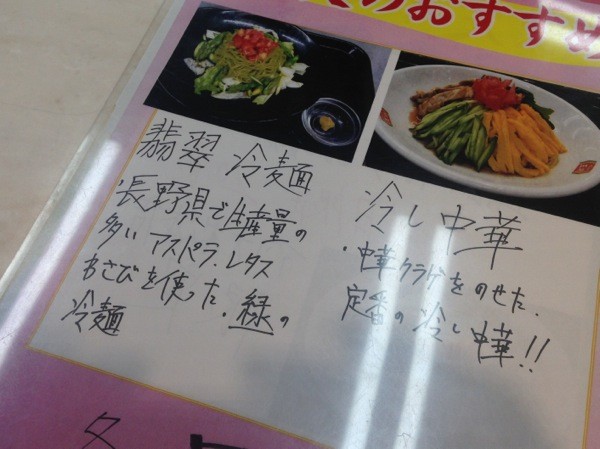 のおすすめ
翡翠 冷麺
・長野県で生産量の
多い アスパラ、レタス
わさびを使った、緑の
冷麺
冷し中華
・中華クラゲをのせた、
定番の冷し中華!!